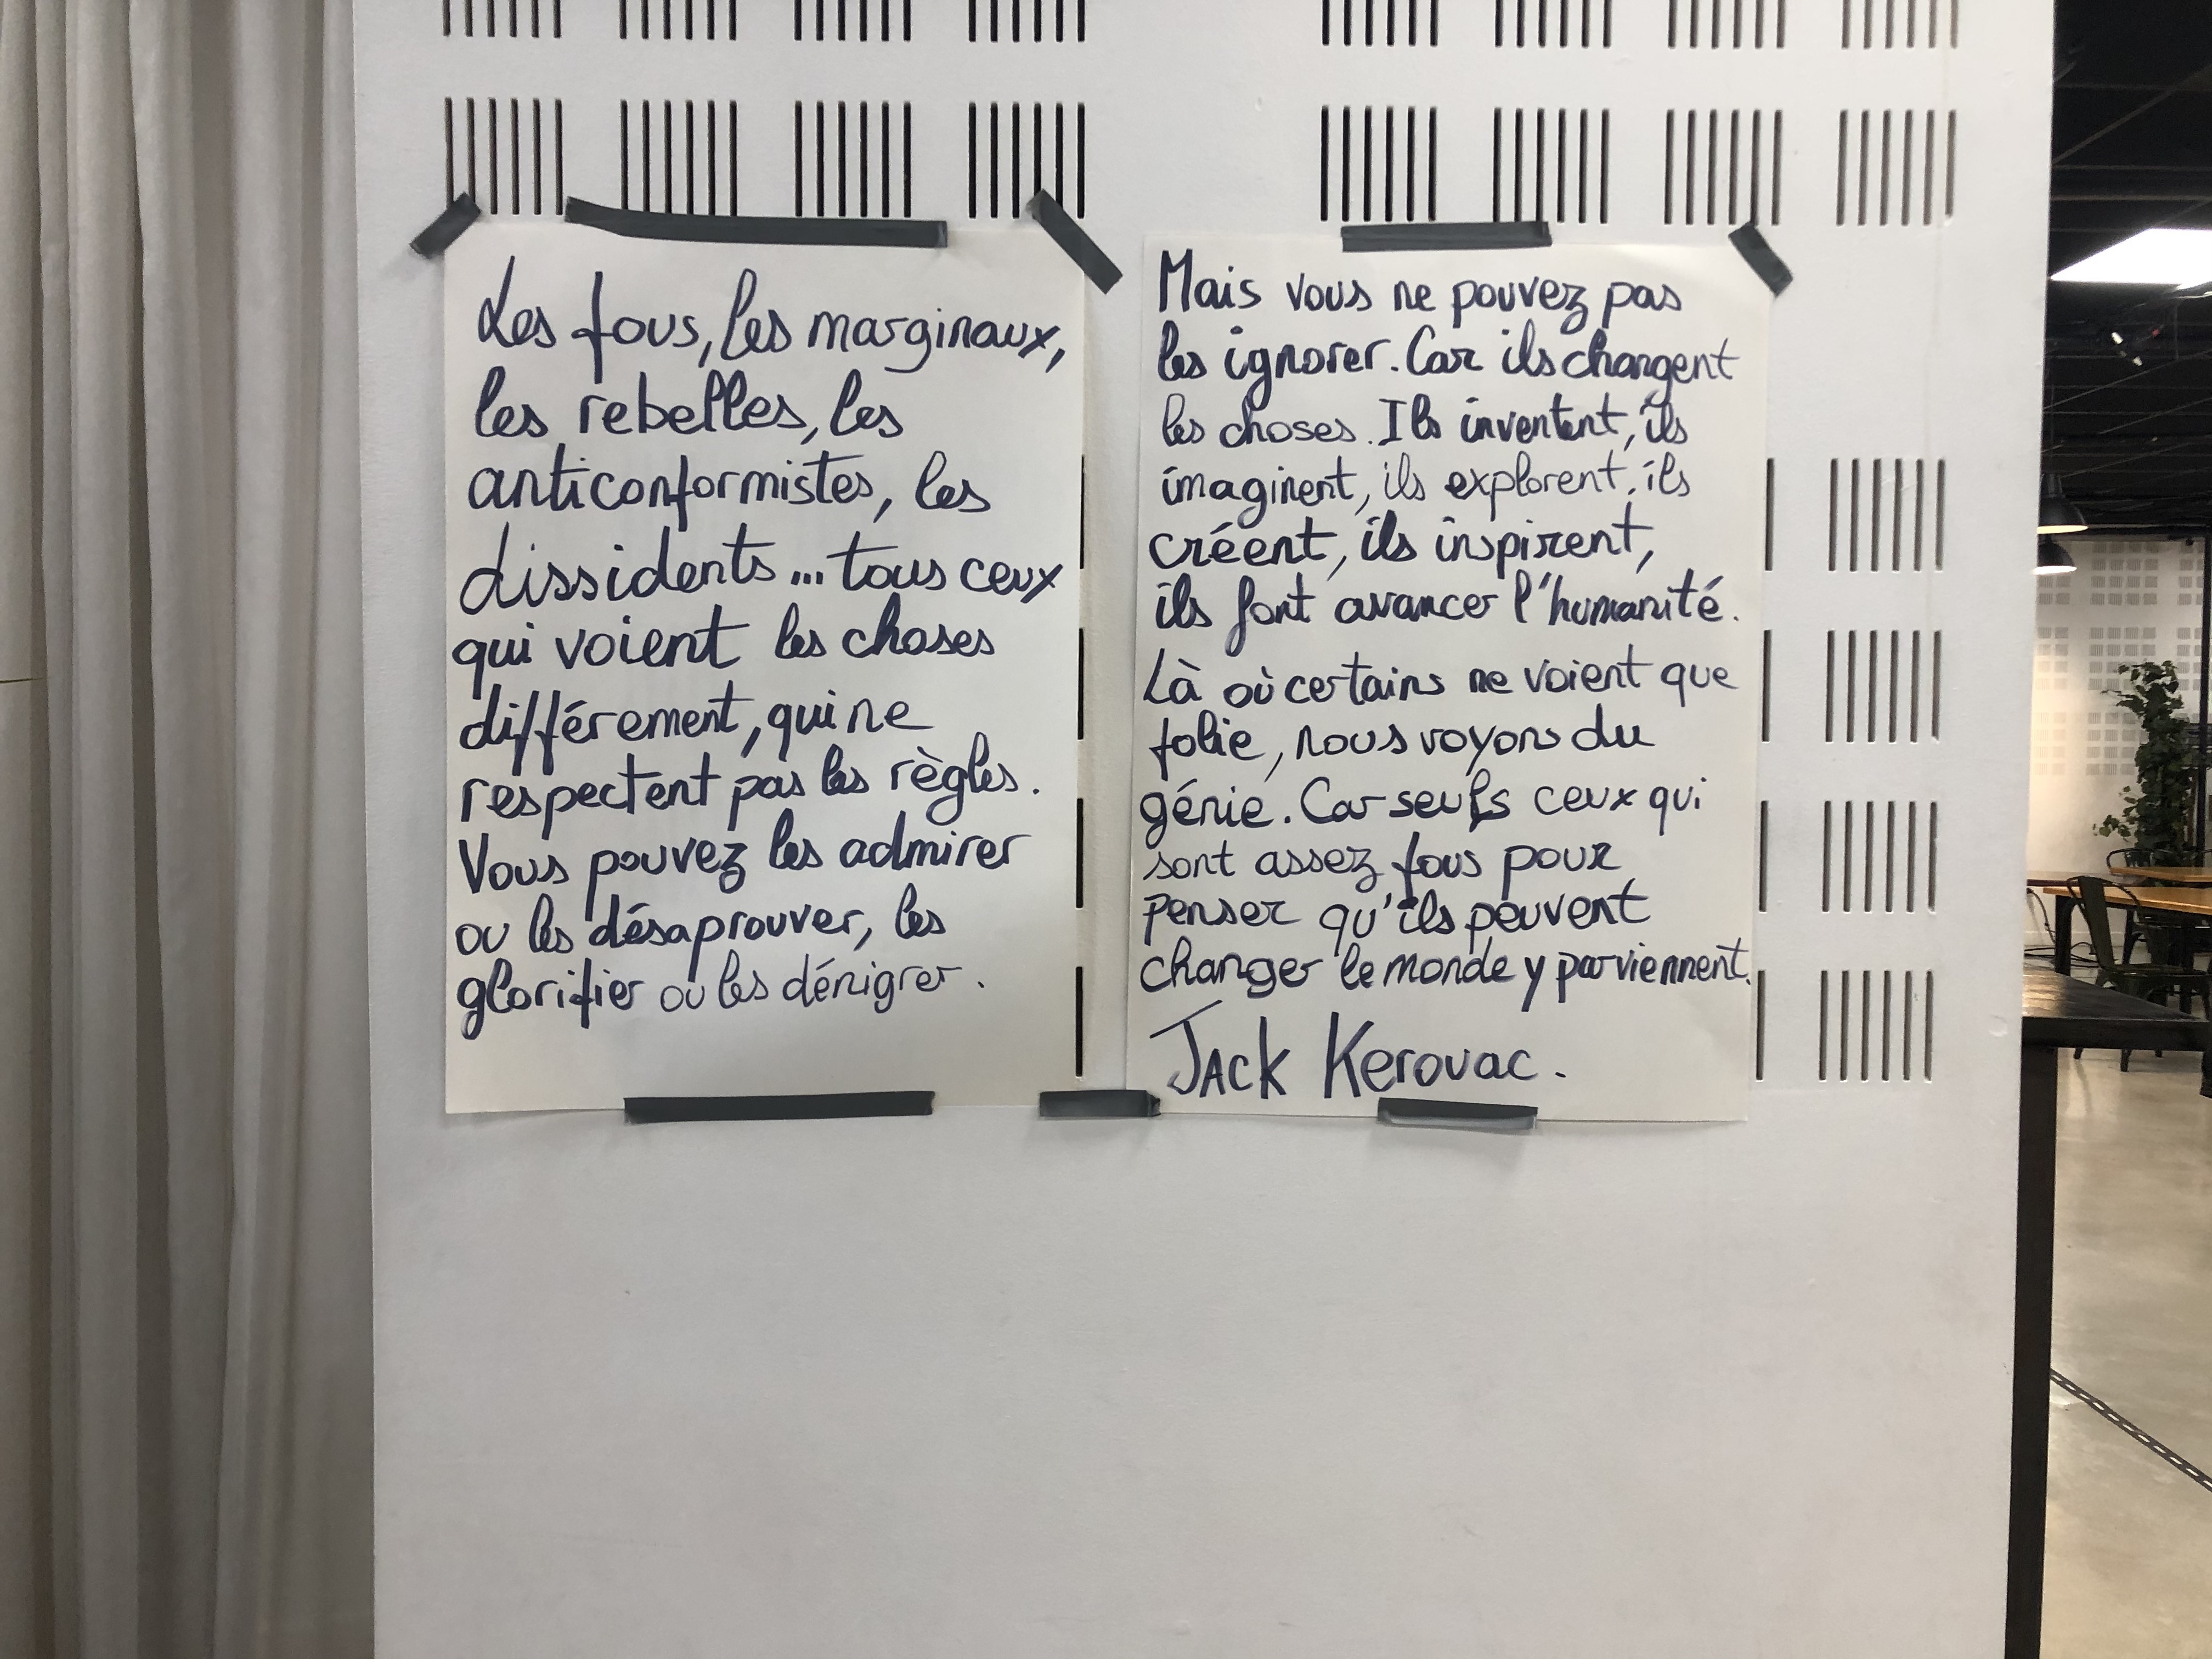 Les fous, les marginaux,
les rebelles, les
anticonformistes, les
dissidents... tous ceux
qui voient les choses
différement, qui ne
respectent pas les règles.
Vous pouvez les admirer
ou les désaprouver, les
glorifier ou les dénigrer.
Mais vous ne pouvez pas
les ignorer. Car ils changent
les choses. Ils inventent, ils
imaginent, ils explorent, ils
créent, ils inspirent,
ils font avancer l'humanité.
Là où certains ne voient que
folie, nous voyons du
génie. Car seuls ceux qui
sont assez fous pour
penser qu'ils peuvent
changer le monde y parviennent.
JACK Kerouac.